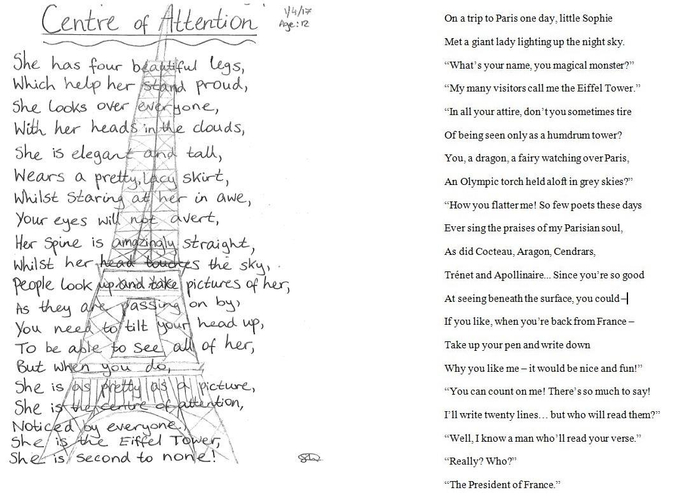 Centre of Attention
1/4/17
Age: 12
She has four beautiful legs,
Which help her stand proud,
She looks over everyone,
With her heads in the clouds,
She is elegant and tall,
Wears a pretty, lacy skirt,
Whilst staring at her in awe,
Your eyes will not avert,
Her spine is amazingly straight,
Whilst her head touches the sky,
People look up and take pictures of her,
As they are passing on by,
You need to tilt your head up,
To be able to see all of her,
But when you do,
She is as pretty as a picture,
She is the centre of attention,
Noticed by everyone,
She is the Eiffel Tower,
She is second to none!
On a trip to Paris one day, little Sophie
Met a giant lady lighting up the night sky.
“What's your name, you magical monster?”
“My many visitors call me the Eiffel Tower.”
“In all your attire, don't you sometimes tire
Of being seen only as a humdrum tower?
You, a dragon, a fairy watching over Paris,
An Olympic torch held aloft in grey skies?”
“How you flatter me! So few poets these days
Ever sing the praises of my Parisian soul,
As did Cocteau, Aragon, Cendrars,
Trénet and Apollinaire... Since you're so good
At seeing beneath the surface, you could –
If you like, when you're back from France –
Take up your pen and write down
Why you like me – it would be nice and fun!”
“You can count on me! There's so much to say!
I'll write twenty lines… but who will read them?”
“Well, I know a man who'll read your verse.”
“Really? Who?”
“The President of France.”